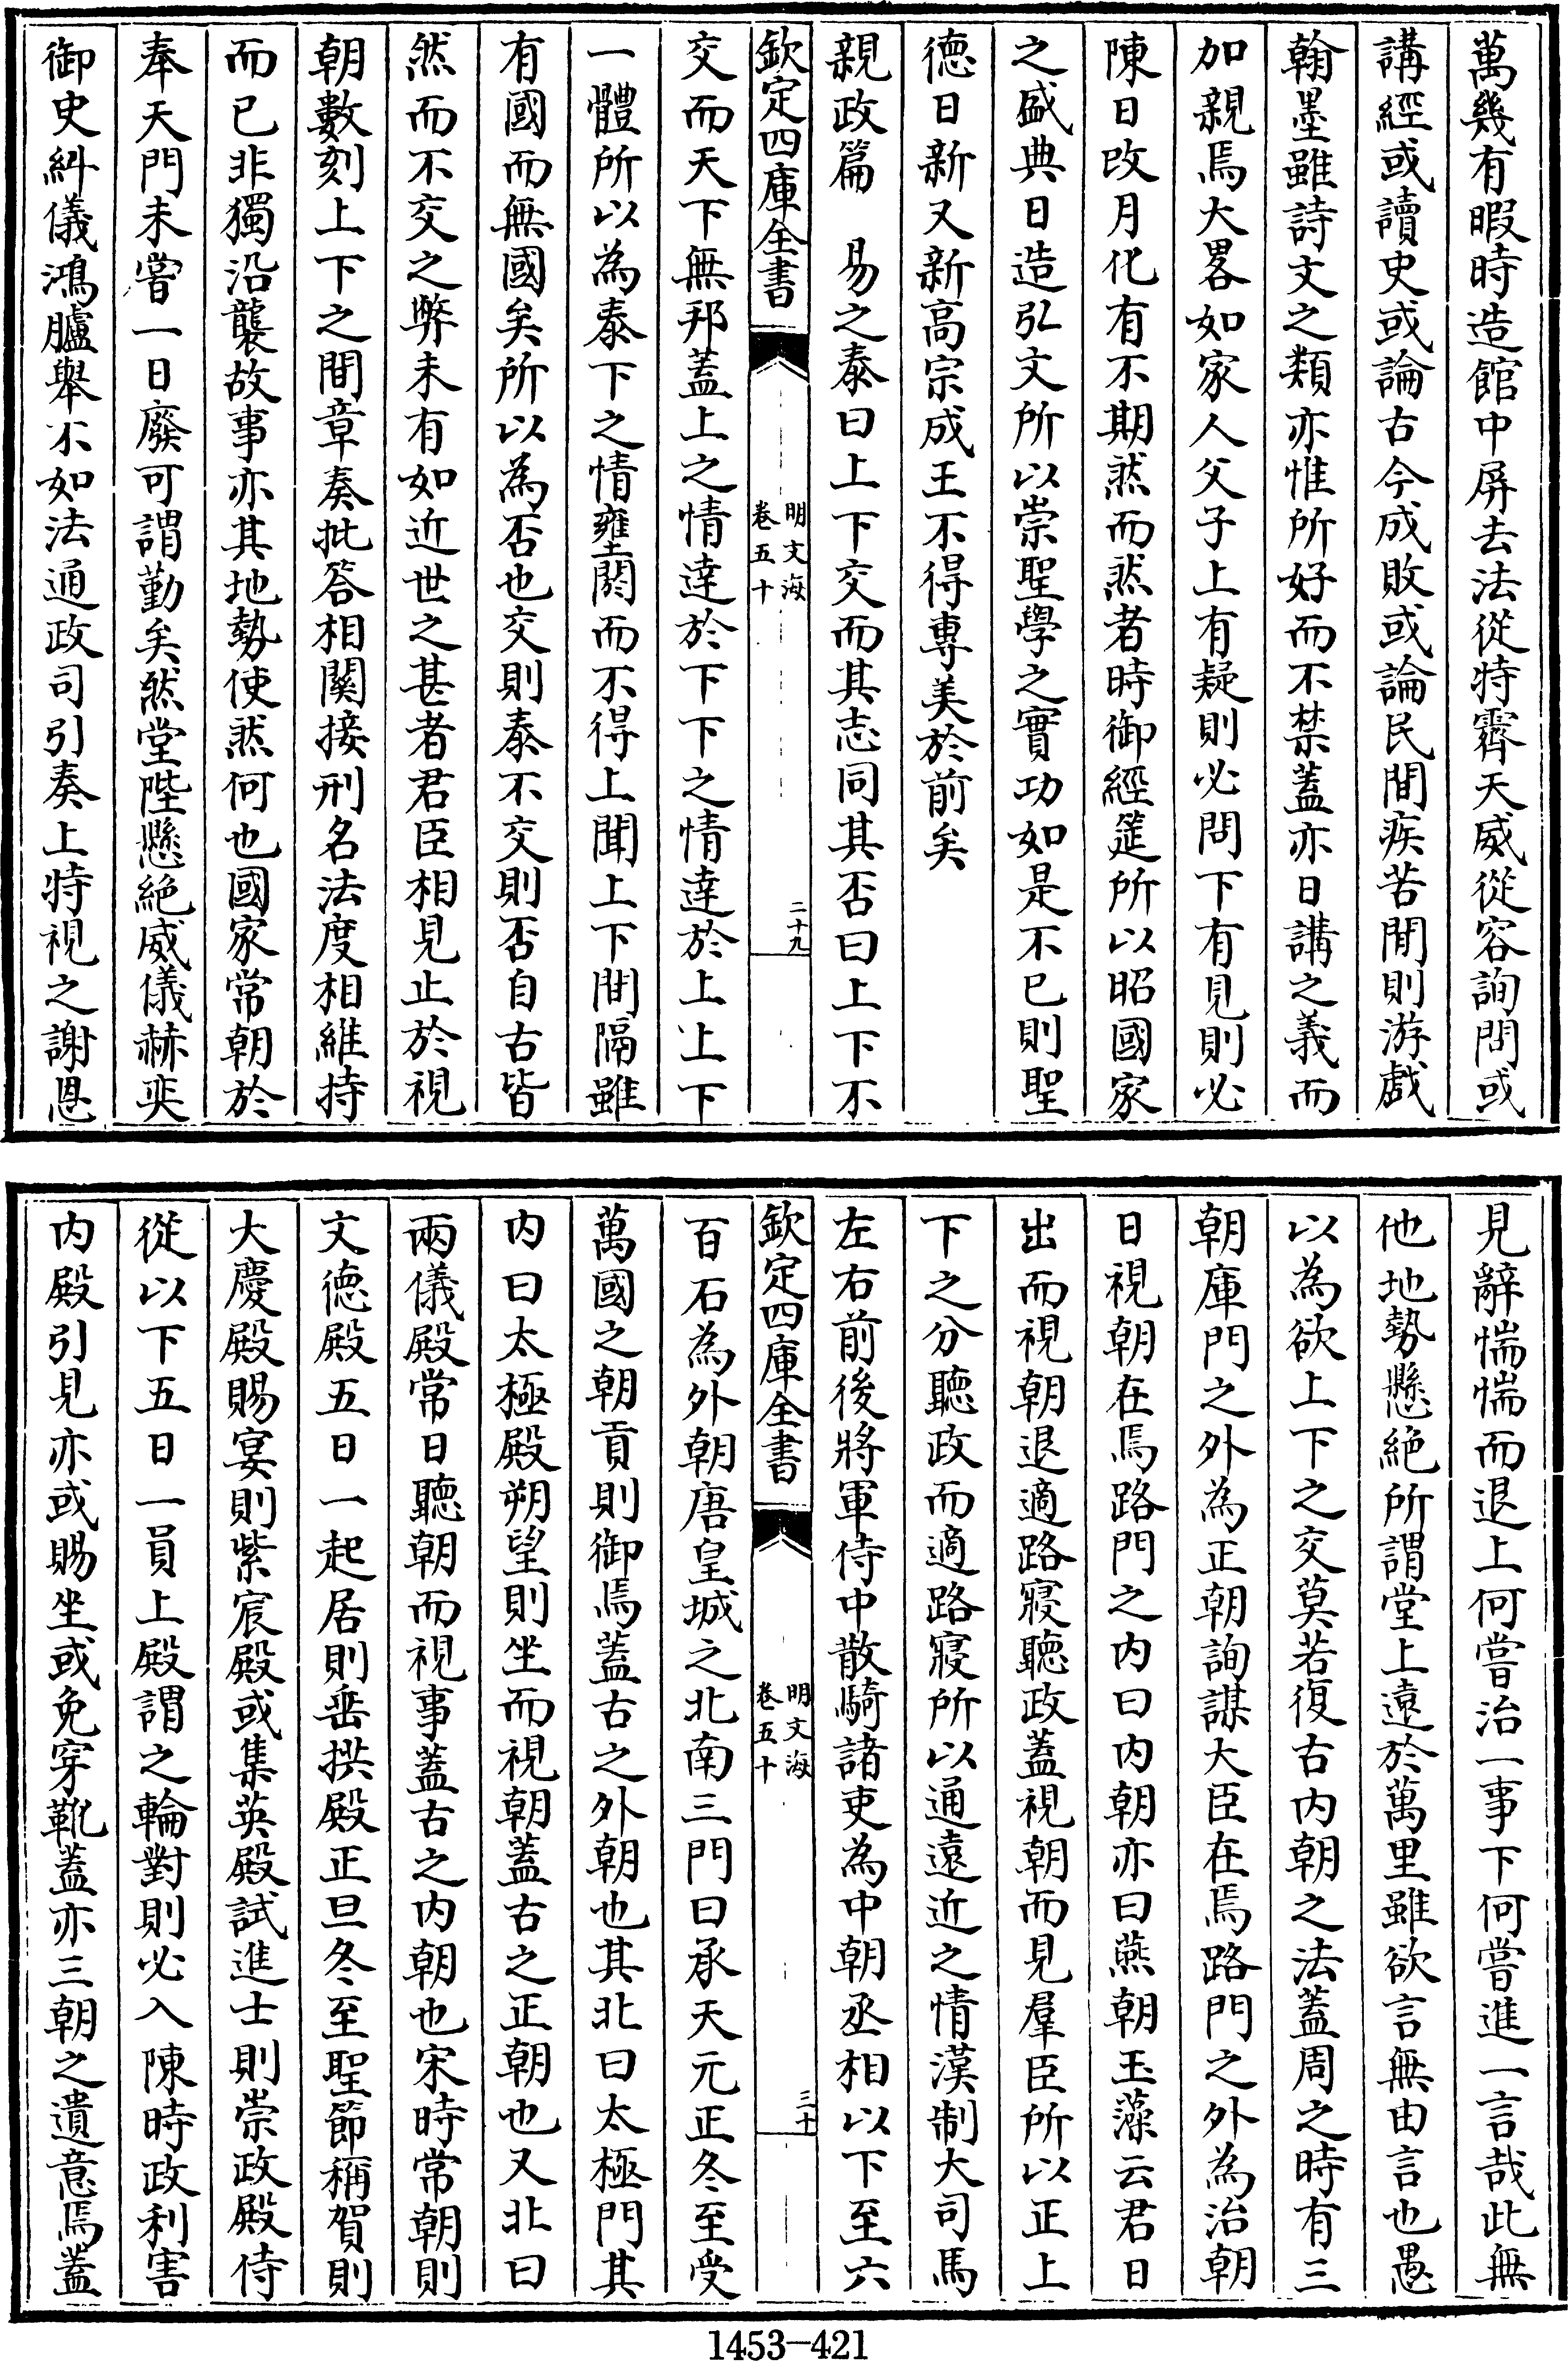 萬幾有暇時造館中屏去法從特霽天威從容詢問或
講經或讀史或論古今成敗或論民間疾苦閒則游戲
翰墨雖詩文之類亦惟所好而不禁蓋亦日講之義而
加親焉大畧如家人父子上有疑則必問下有見則必
陳日改月化有不期然而然者時御經筵所以昭國家
之盛典日造弘文所以崇聖學之實功如是不已則聖
德日新又新高宗成王不得專美於前矣
親政篇　易之泰曰上下交而其志同其否曰上下不
欽定四庫全書
明文海
卷五十
二十九
交而天下無邦蓋上之情達於下下之情達於上上下
一體所以為泰下之情壅閼而不得上聞上下間隔雖
有國而無國矣所以為否也交則泰不交則否自古皆
然而不交之弊未有如近世之甚者君臣相見止於視
朝數刻上下之間章奏批答相關接刑名法度相維持
而已非獨沿襲故事亦其地勢使然何也國家常朝於
奉天門未嘗一日廢可謂勤矣然堂陛懸絶威儀赫奕
御史糾儀鴻臚舉不如法通政司引奏上特視之謝恩
見辭惴惴而退上何嘗治一事下何嘗進一言哉此無
他地勢懸絶所謂堂上遠於萬里雖欲言無由言也愚
以為欲上下之交莫若復古内朝之法蓋周之時有三
朝庫門之外為正朝詢謀大臣在焉路門之外為治朝
日視朝在焉路門之内曰内朝亦曰燕朝玉藻云君日
出而視朝退適路寢聽政蓋視朝而見羣臣所以正上
下之分聽政而適路寢所以通遠近之情漢制大司馬
左右前後將軍侍中散騎諸吏為中朝丞相以下至六
欽定四庫全書
明文海
卷五十
三十
百石為外朝唐皇城之北南三門曰承天元正冬至受
萬國之朝貢則御焉蓋古之外朝也其北曰太極門其
内曰太極殿朔望則坐而視朝蓋古之正朝也又北曰
兩儀殿常日聽朝而視事蓋古之内朝也宋時常朝則
文德殿五日一起居則垂拱殿正旦冬至聖節稱賀則
大慶殿賜宴則紫宸殿或集英殿試進士則崇政殿侍
從以下五日一員上殿謂之輪對則必入陳時政利害
内殿引見亦或賜坐或免穿靴蓋亦三朝之遺意焉蓋
1453-421